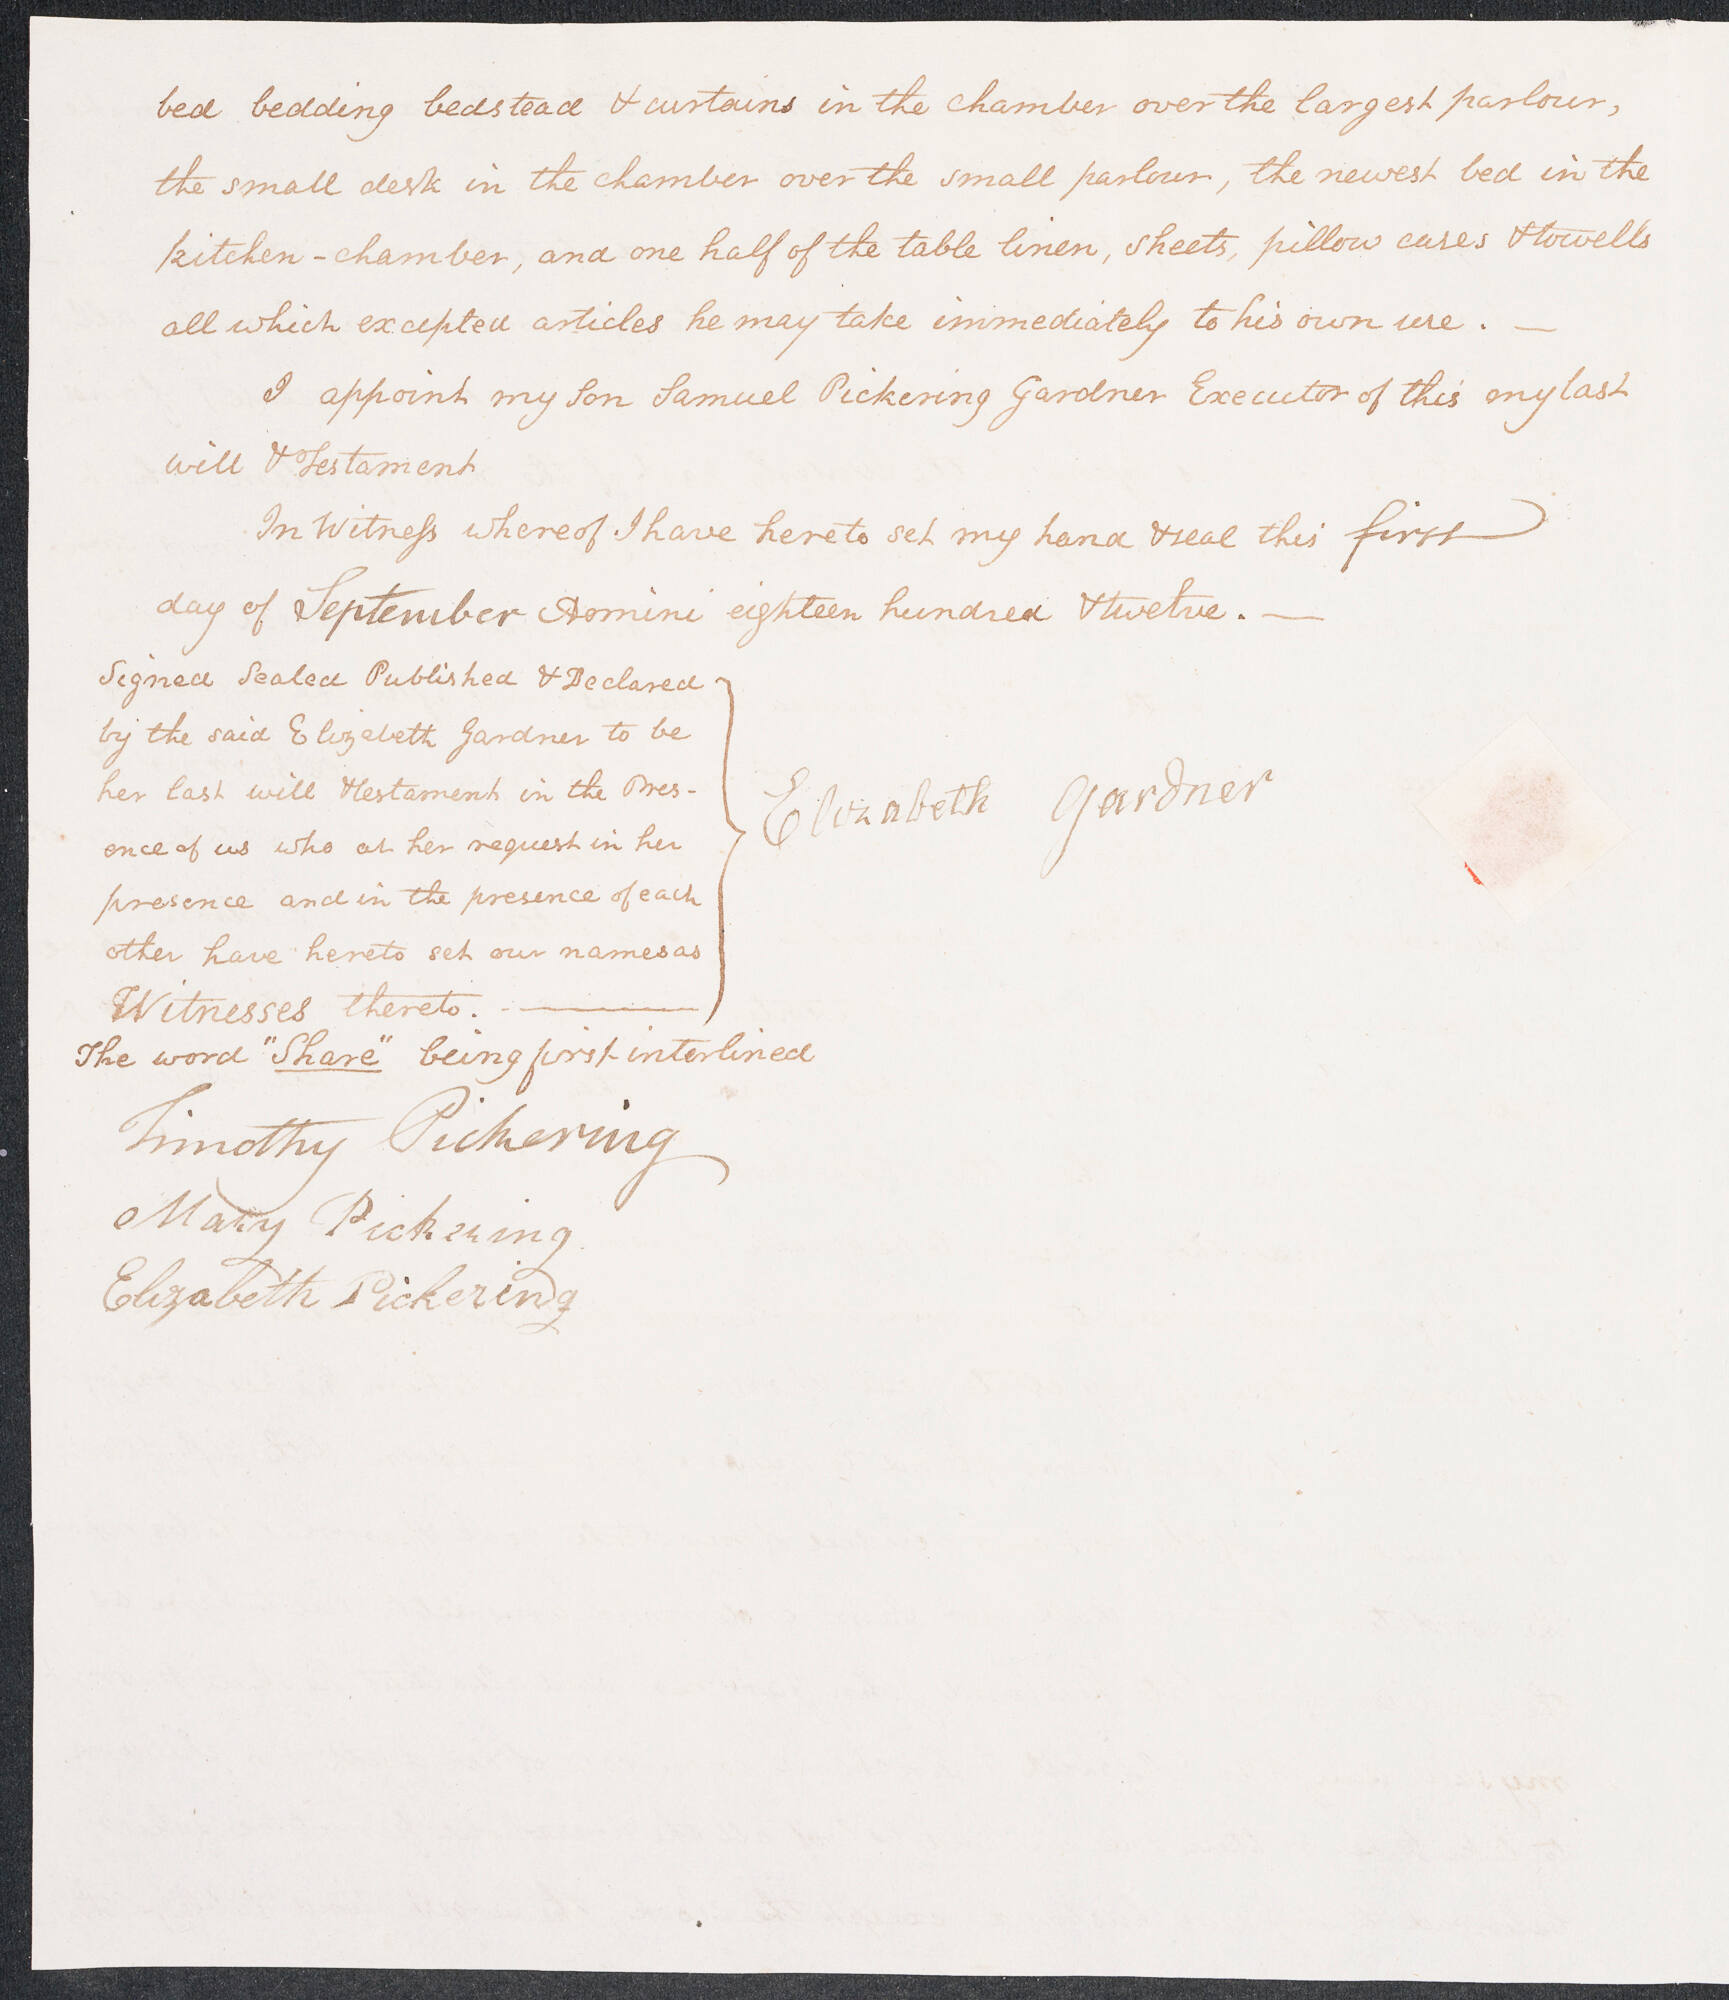 bed bedding bedstead & curtains in the chamber over the largest parlour,
the small desk in the chamber over the small parlour, the newest bed in the
kitchen-chamber, and one half of the table linen, sheets, pillow cases & towells
all which excepted articles he may take immediately to his own use. —
I appoint my Son Samuel Pickering Gardner Executor of this my last
will & Testament
In Witness whereof I have hereto set my hand & seal this first
day of September Domini eighteen hundred & twelve. —
Signed Sealed Published & Declared
by the said Elizabeth Gardner to be
her last will & testament in the Pres-
ence of us who at her request in her
presence and in the presence of each
other have hereto set our names as
Witnesses thereto. —
Elizabeth Gardner
The word "Share" being first interlined
Timothy Pickering
Mary Pickering
Elizabeth Pickering